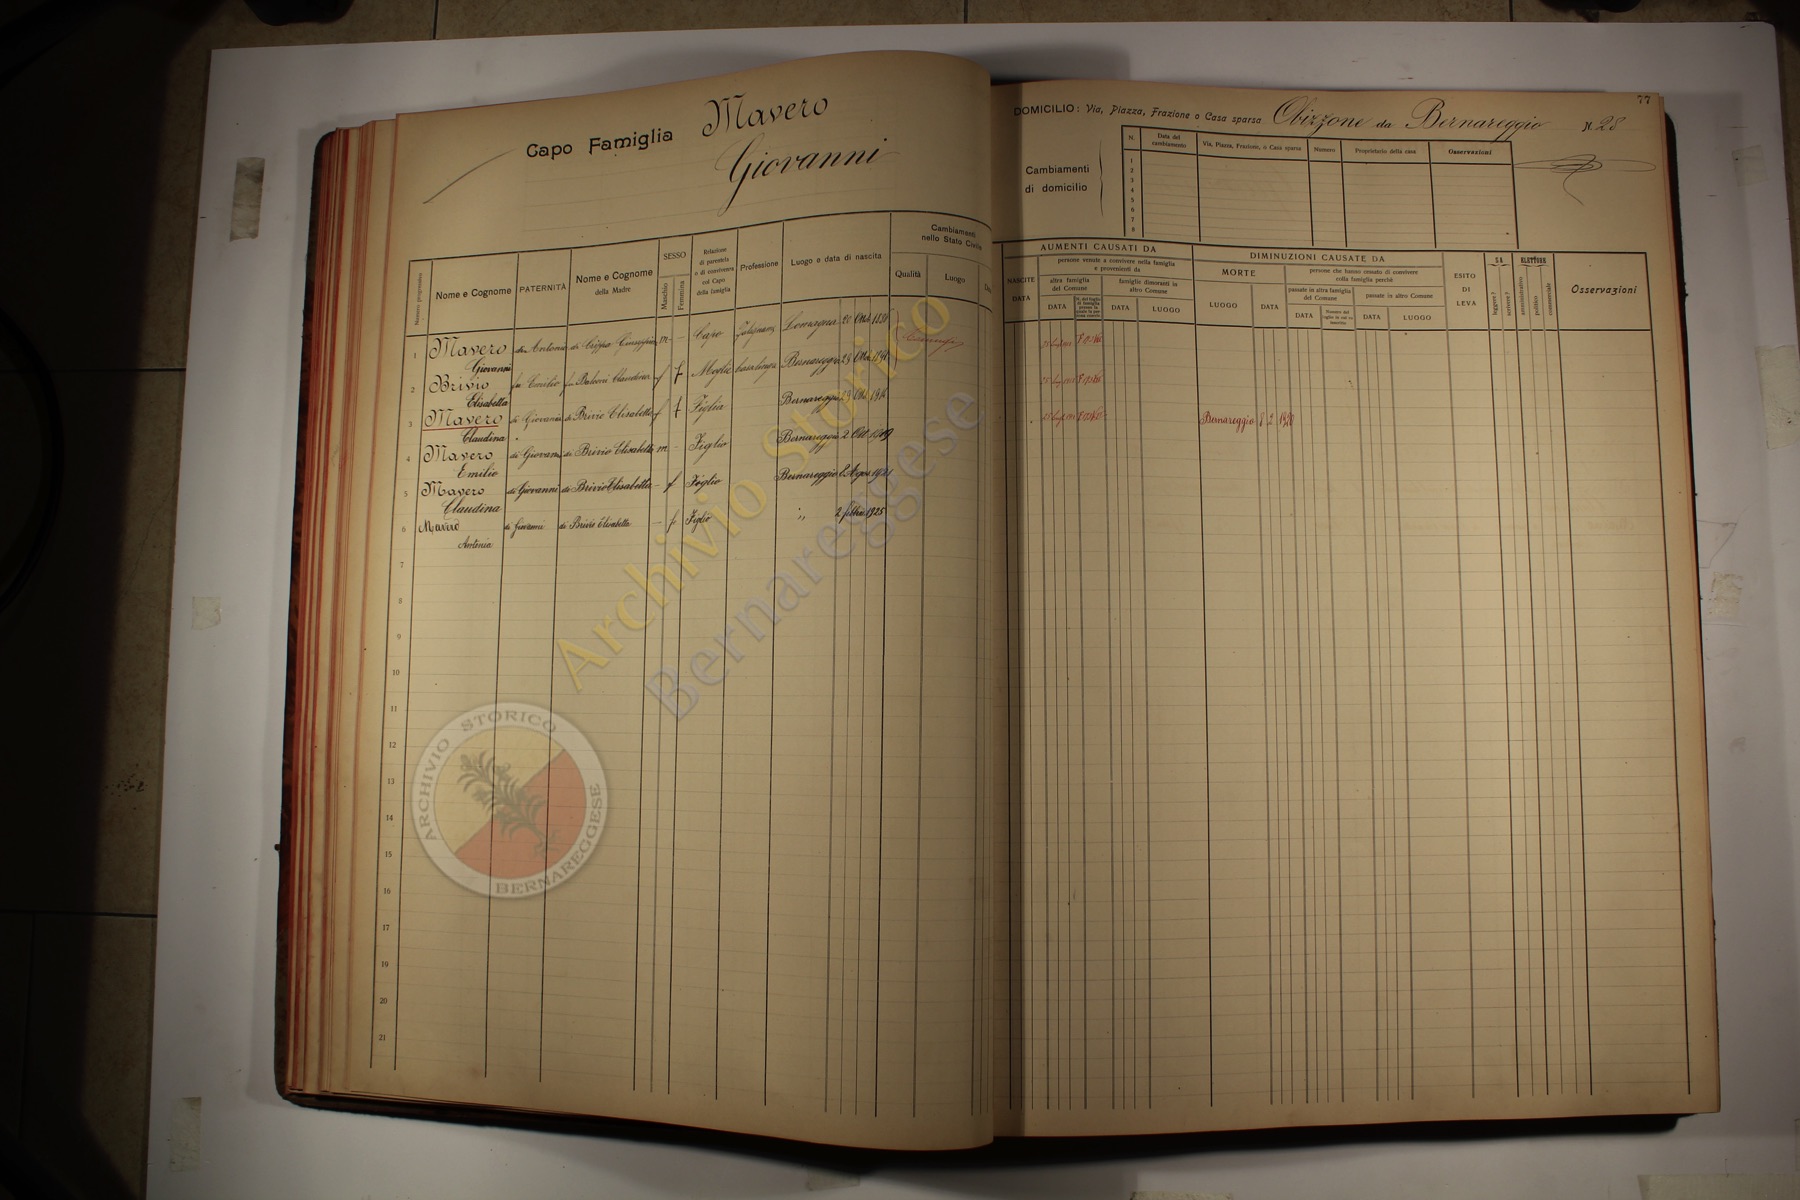 77
Capo Famiglia Mavero
Giovanni
DOMICILIO: Via, Piazza, Frazione o Casa sparsa Obizzone da Bernareggio N. 28
Cambiamenti
di domicilio
N. Data del cambiamento Via, Piazza, Frazione, o Casa sparsa Numero Proprietario della casa Osservazioni
1
2
3
4
5
6
7
8
Numero progressivo Nome e Cognome PATERNITÀ Nome e Cognome della Madre SESSO Maschio Femmina Relazione di parentela o di convivenza col Capo della famiglia Professione Luogo e data di nascita Cambiamenti nello Stato Civile Qualità Luogo
NASCITE DATA AUMENTI CAUSATI DA persone venute a convivere nella famiglia e provenienti da altra famiglia del Comune DATA famiglie dimoranti in altro Comune DATA LUOGO
DIMINUZIONI CAUSATE DA MORTE LUOGO DATA persone che hanno cessato di convivere colla famiglia perchè passate in altra famiglia del Comune DATA passate in altro Comune DATA LUOGO
ESITO DI LEVA SA leggere? scrivere? ELETTORE amministrativo politico commerciale Osservazioni
1 Mavero Giovanni Antonio di Crippa Giuseppina m - Capo Lomagna
2 Brivio Elisabetta fu Emilio fu Claudina f Moglie casalinga Bernareggio
3 Mavero Claudina di Giovanni di Brivio Elisabetta f Figlia Bernareggio Bernareggio 8 2 1920
4 Mavero Emilio di Giovanni di Brivio Elisabetta m - Figlio Bernareggio 2 Ott 1919
5 Mavero Claudina di Giovanni di Brivio Elisabetta - f Figlio Bernareggio 1921
6 Mavero Antonia di Giovanni di Brivio Elisabetta - f Figlio ,, 2 1925
7
8
9
10
11
12
13
14
15
16
17
18
19
20
21
Archivio Storico
Bernareggese
ARCHIVIO STORICO
BERNAREGGESE